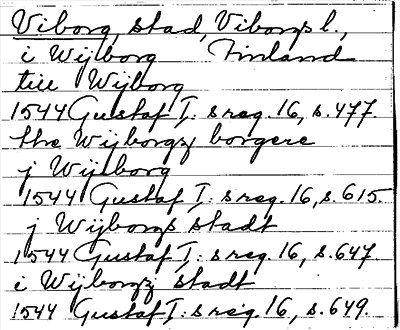 Viborg, stad, Viborgs l.,
i Wijborg Finland
till Wijborg
1544 Gustaf I:s reg. 16, s. 477.
the Wijborgz borgere
j Wijborg
1544 Gustaf I:s reg. 16, s. 615.
j Wijborgs stadt
1544 Gustaf I:s reg. 16, s. 647
i Wijborgz stadt
1544 Gustaf I:s reg. 16, s. 649.